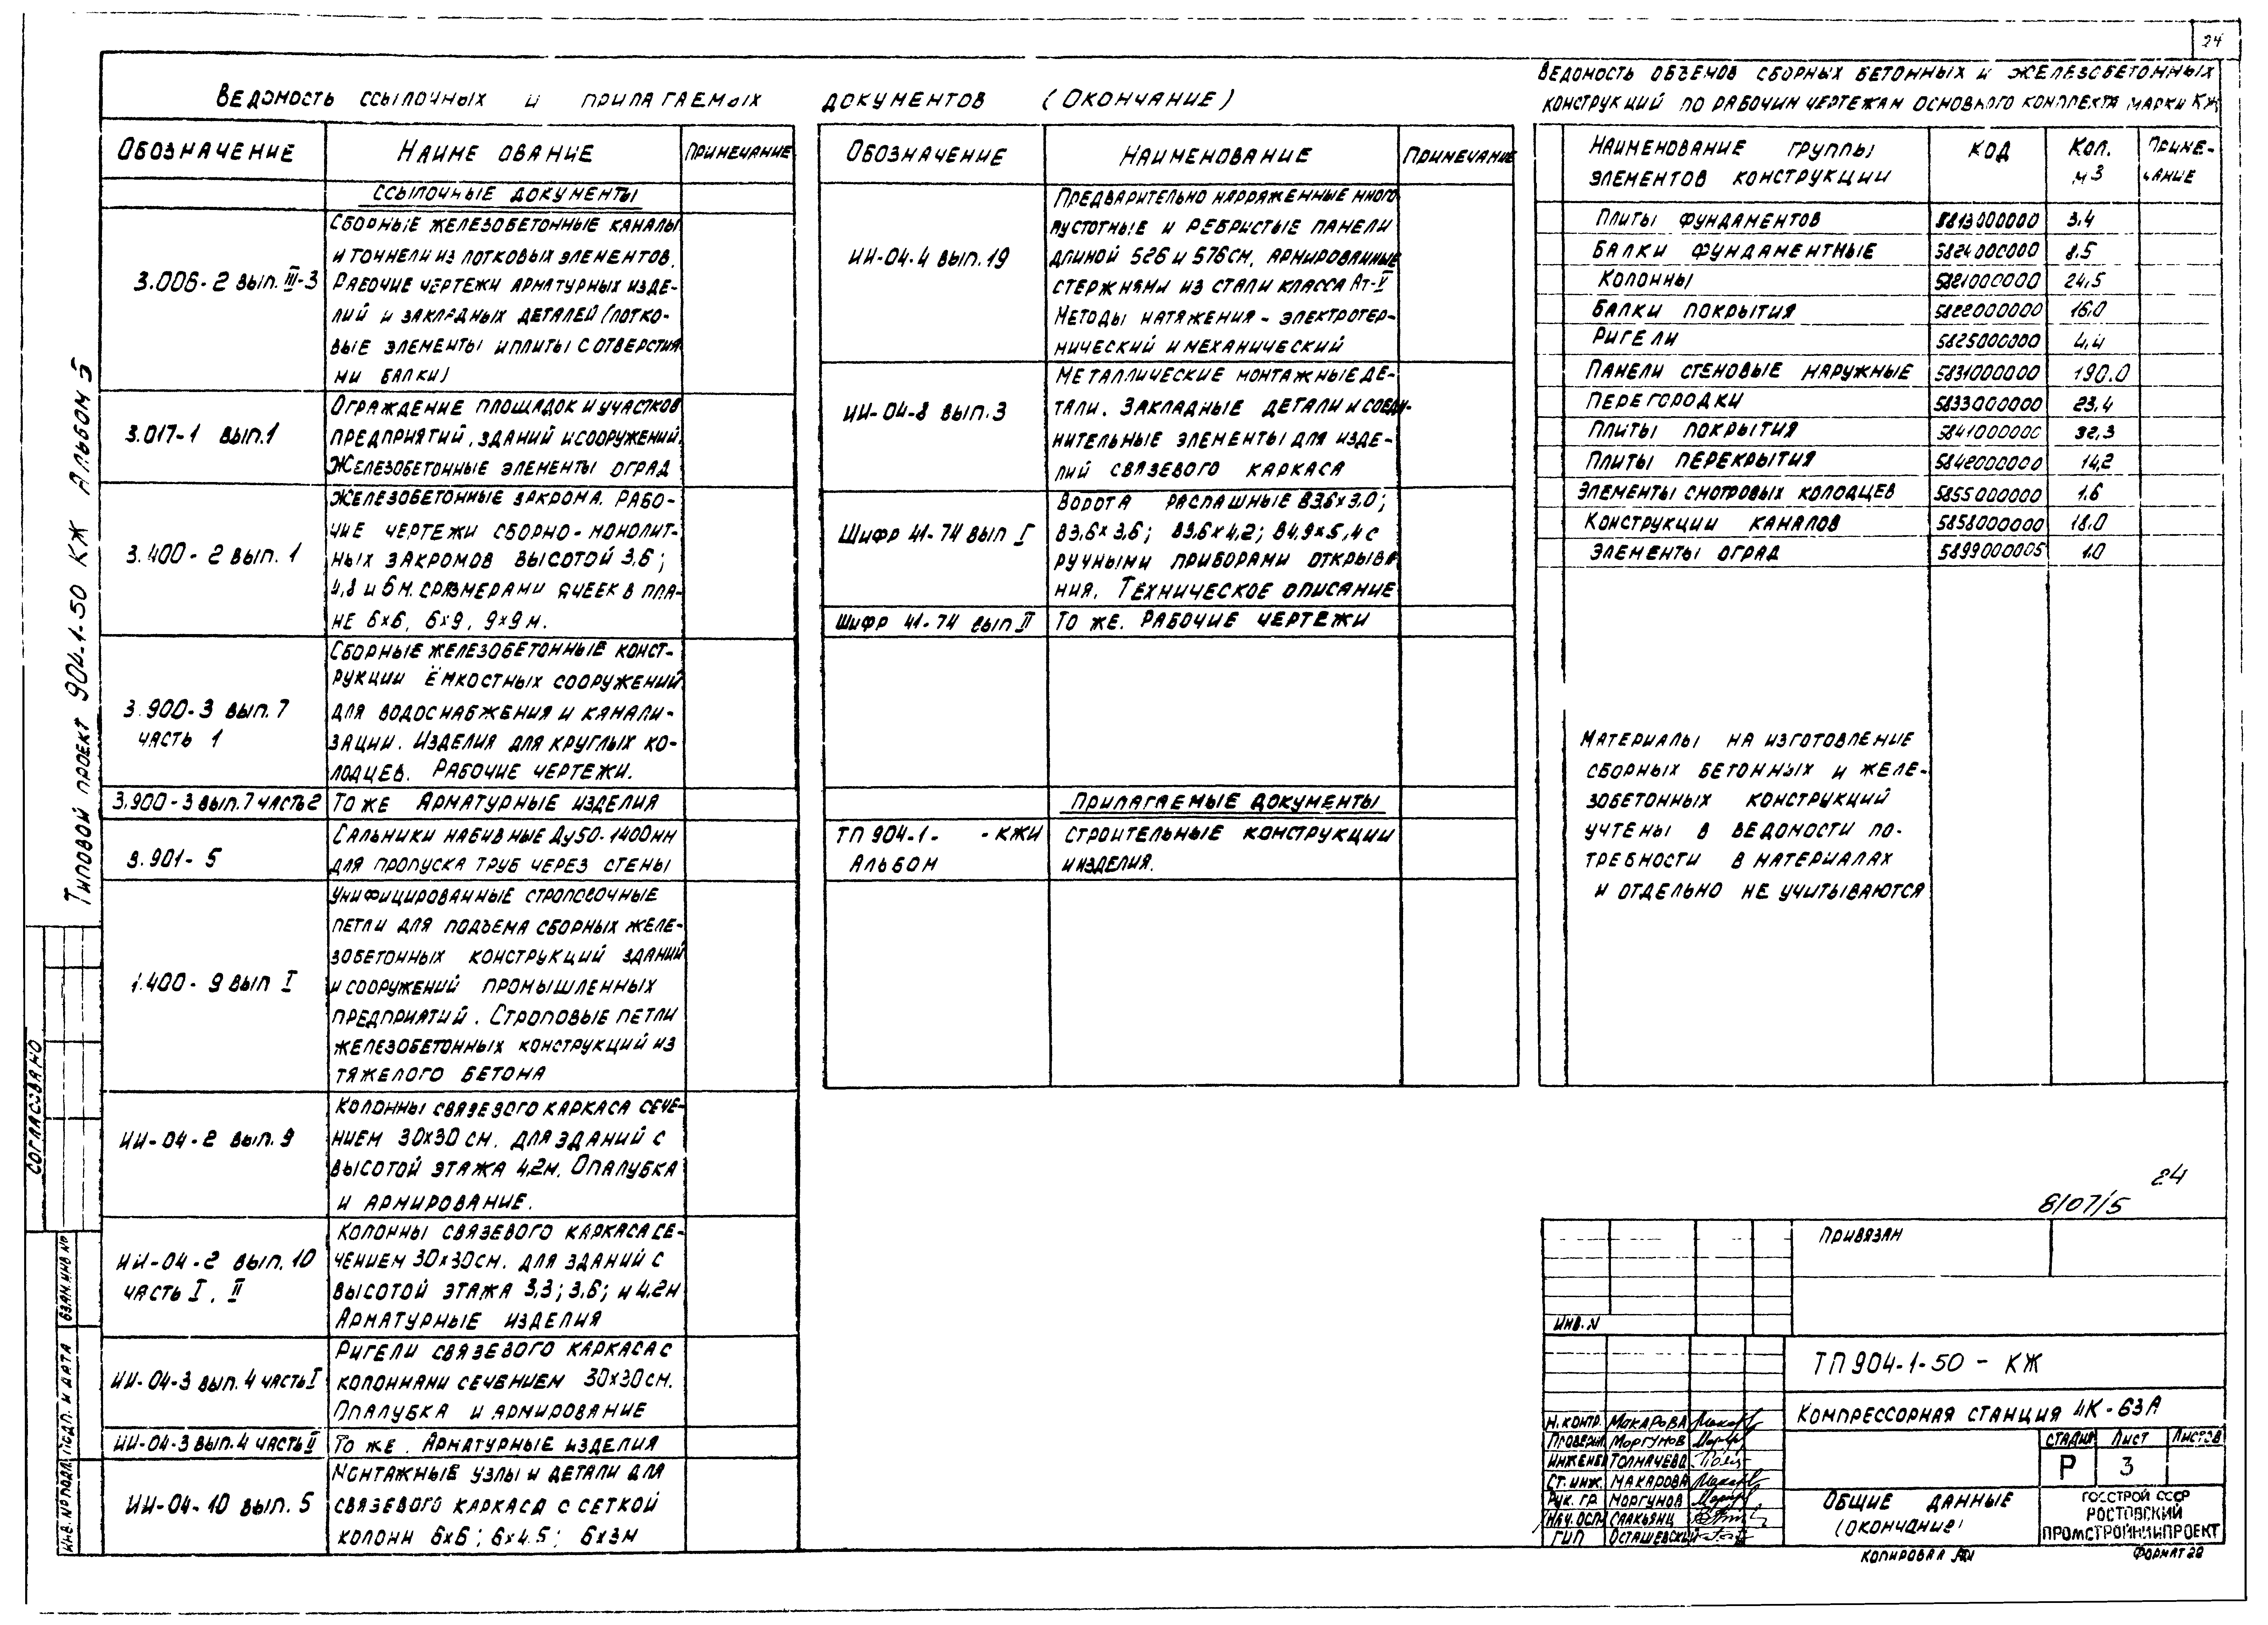 24
Ведомость ссылочных и прилагаемых документов (Окончание)
Обозначение Наиме ование Примечание
Ссылочные документы
3.006-2 вып. III-3
Сборные железобетонные каналы
и тоннели из лотковых элементов.
Рабочие чертежи арматурных изде-
лий и закладных деталей (лотко-
вые элементы и плиты с отверстия
ми балки)
3.017-1 вып.1
Ограждение площадок и участков
предприятий, зданий и сооружений.
Железобетонные элементы оград
3.400-2 вып. 1
Железобетонные закрома. Рабо-
чие чертежи сборно-монолит-
ных закромов высотой 3,6;
4,8 и 6 м. с размерами ячеек в пла-
не 6×6, 6×9, 9×9 м.
3.900-3 вып. 7
часть 1
Сборные железобетонные конст-
рукции ёмкостных сооружений
для водоснабжения и канали-
зации. Изделия для круглых ко-
лодцев. Рабочие чертежи.
3.900-3 вып. 7 часть 2 То же Арматурные изделия
3.901-5
Сальники набивные Ду50-1400мм
для пропуска труб через стены
1.400-9 вып I
Унифицированные строповочные
петли для подъема сборных желе-
зобетонных конструкций зданий
и сооружений промышленных
предприятий. Строповые петли
железобетонных конструкций из
тяжелого бетона
ИИ-04-2 вып. 9
Колонны связевого каркаса сече-
нием 30×30 см. для зданий с
высотой этажа 4,2м. Опалубка
и армирование.
ИИ-04-2 вып. 10
часть I, II
Колонны связевого каркаса се-
чением 30×30см. для зданий с
высотой этажа 3,3; 3,6; и 4,2м
Арматурные изделия
ИИ-04-3 вып. 4 часть I
Ригели связевого каркаса с
колоннами сечением 30×30см.
Опалубка и армирование
ИИ-04-3 вып. 4 часть II То же. Арматурные изделия
ИИ-04-10 вып. 5
Монтажные узлы и детали для
связевого каркаса с сеткой
колонн 6×6; 6×4.5; 6×3м
Обозначение Наименование Примечание
ИИ-04-4 вып. 19
Предварительно напряженные много
пустотные и ребристые панели
длиной 526 и 576см, армированные
стержнями из стали класса Ат-V
Методы натяжения - электротер-
мический и механический
ИИ-04-8 вып. 3
Металлические монтажные де-
тали. Закладные детали и соеди-
нительные элементы для изде-
лий связевого каркаса
Шифр 41-74 вып I
Ворота распашные В3.6×3.0;
В3,6×3,6; В3,6×4,2; В4,9×5,4 с
ручными приборами открыва
ния. Техническое описание
Шифр 41-74 вып II То же. Рабочие чертежи
Прилагаемые документы
ТП 904-1- -КЖИ Строительные конструкции
Альбом и изделия.
Ведомость объемов сборных бетонных и железобетонных
конструкций по рабочим чертежам основного комплекта марки КЖ
Наименование группы Код Кол. Приме-
элементов конструкции м3 чание
Плиты фундаментов 5813000000 3.4
Балки фундаментные 5824000000 8.5
Колонны 5821000000 24,5
Балки покрытия 5822000000 16,0
Ригели 5825000000 4,4
Панели стеновые наружные 5831000000 190.0
Перегородки 5833000000 23,4
Плиты покрытия 5841000000 32,3
Плиты перекрытия 5842000000 14,2
Элементы смотровых колодцев 5855000000 1.6
Конструкции каналов 5858000000 18.0
Элементы оград 5899000005 1.0
Материалы на изготовление
сборных бетонных и желе-
зобетонных конструкций
учтены в ведомости по-
требности в материалах
и отдельно не учитываются
24
8107/5
Привязан
Инв. N
ТП 904-1-50 - КЖ
Компрессорная станция 4К-63А
Н. контр. Макарова
Проверил Моргунов
Инженер Толмачева
Ст. инж. Макарова
Рук. гр Моргунов
Нач. осп Саакьянц
ГИП Осташевский
Стадия Лист Листов
Р 3
Общие данные
(окончание)
Госстрой СССР
Ростовский
Промстройниипроект
Копировал
Формат 22
Типовой проект 904-1-50 КЖ Альбом 5
Согласовано
Взам. инв №
Подп. и дата
Инв. № подл.